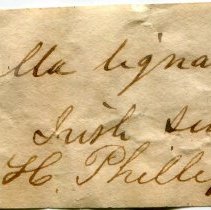 lla ligna
Irish
H. Phille